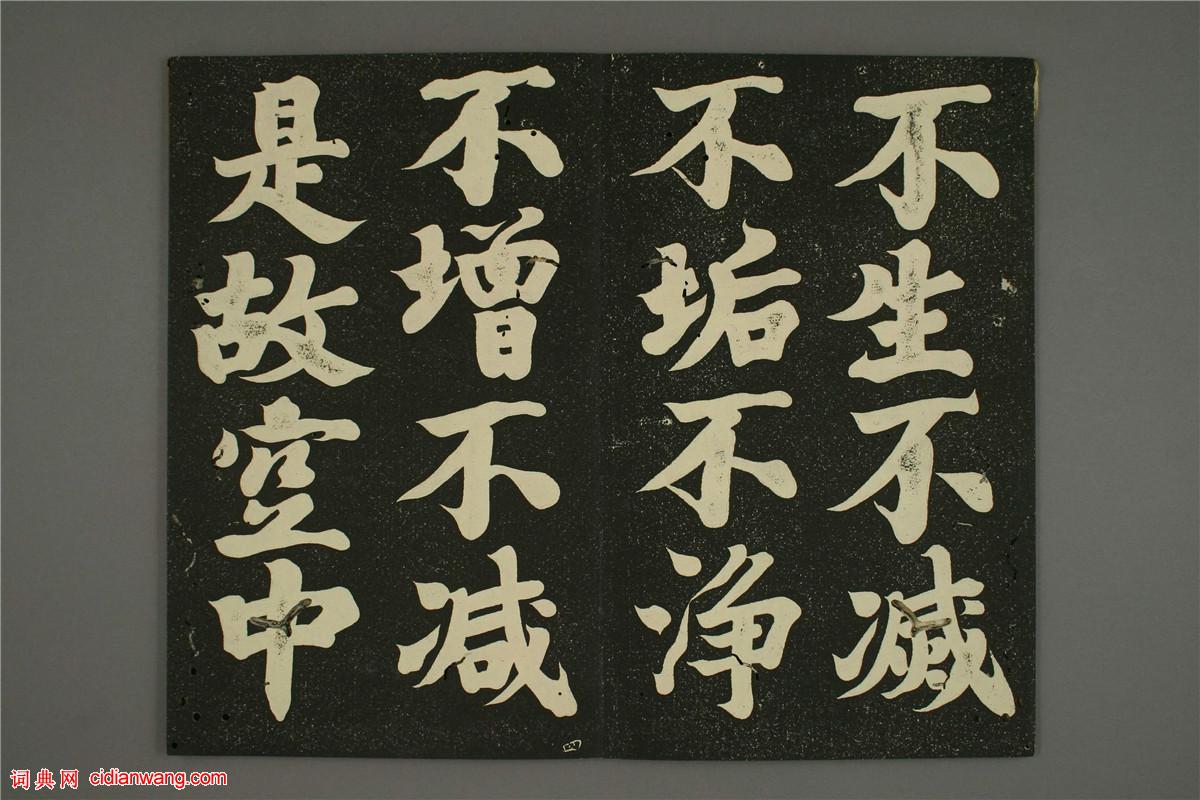 不生不滅
不垢不净
不增不减
是故空中
词典网 cidianwang.com